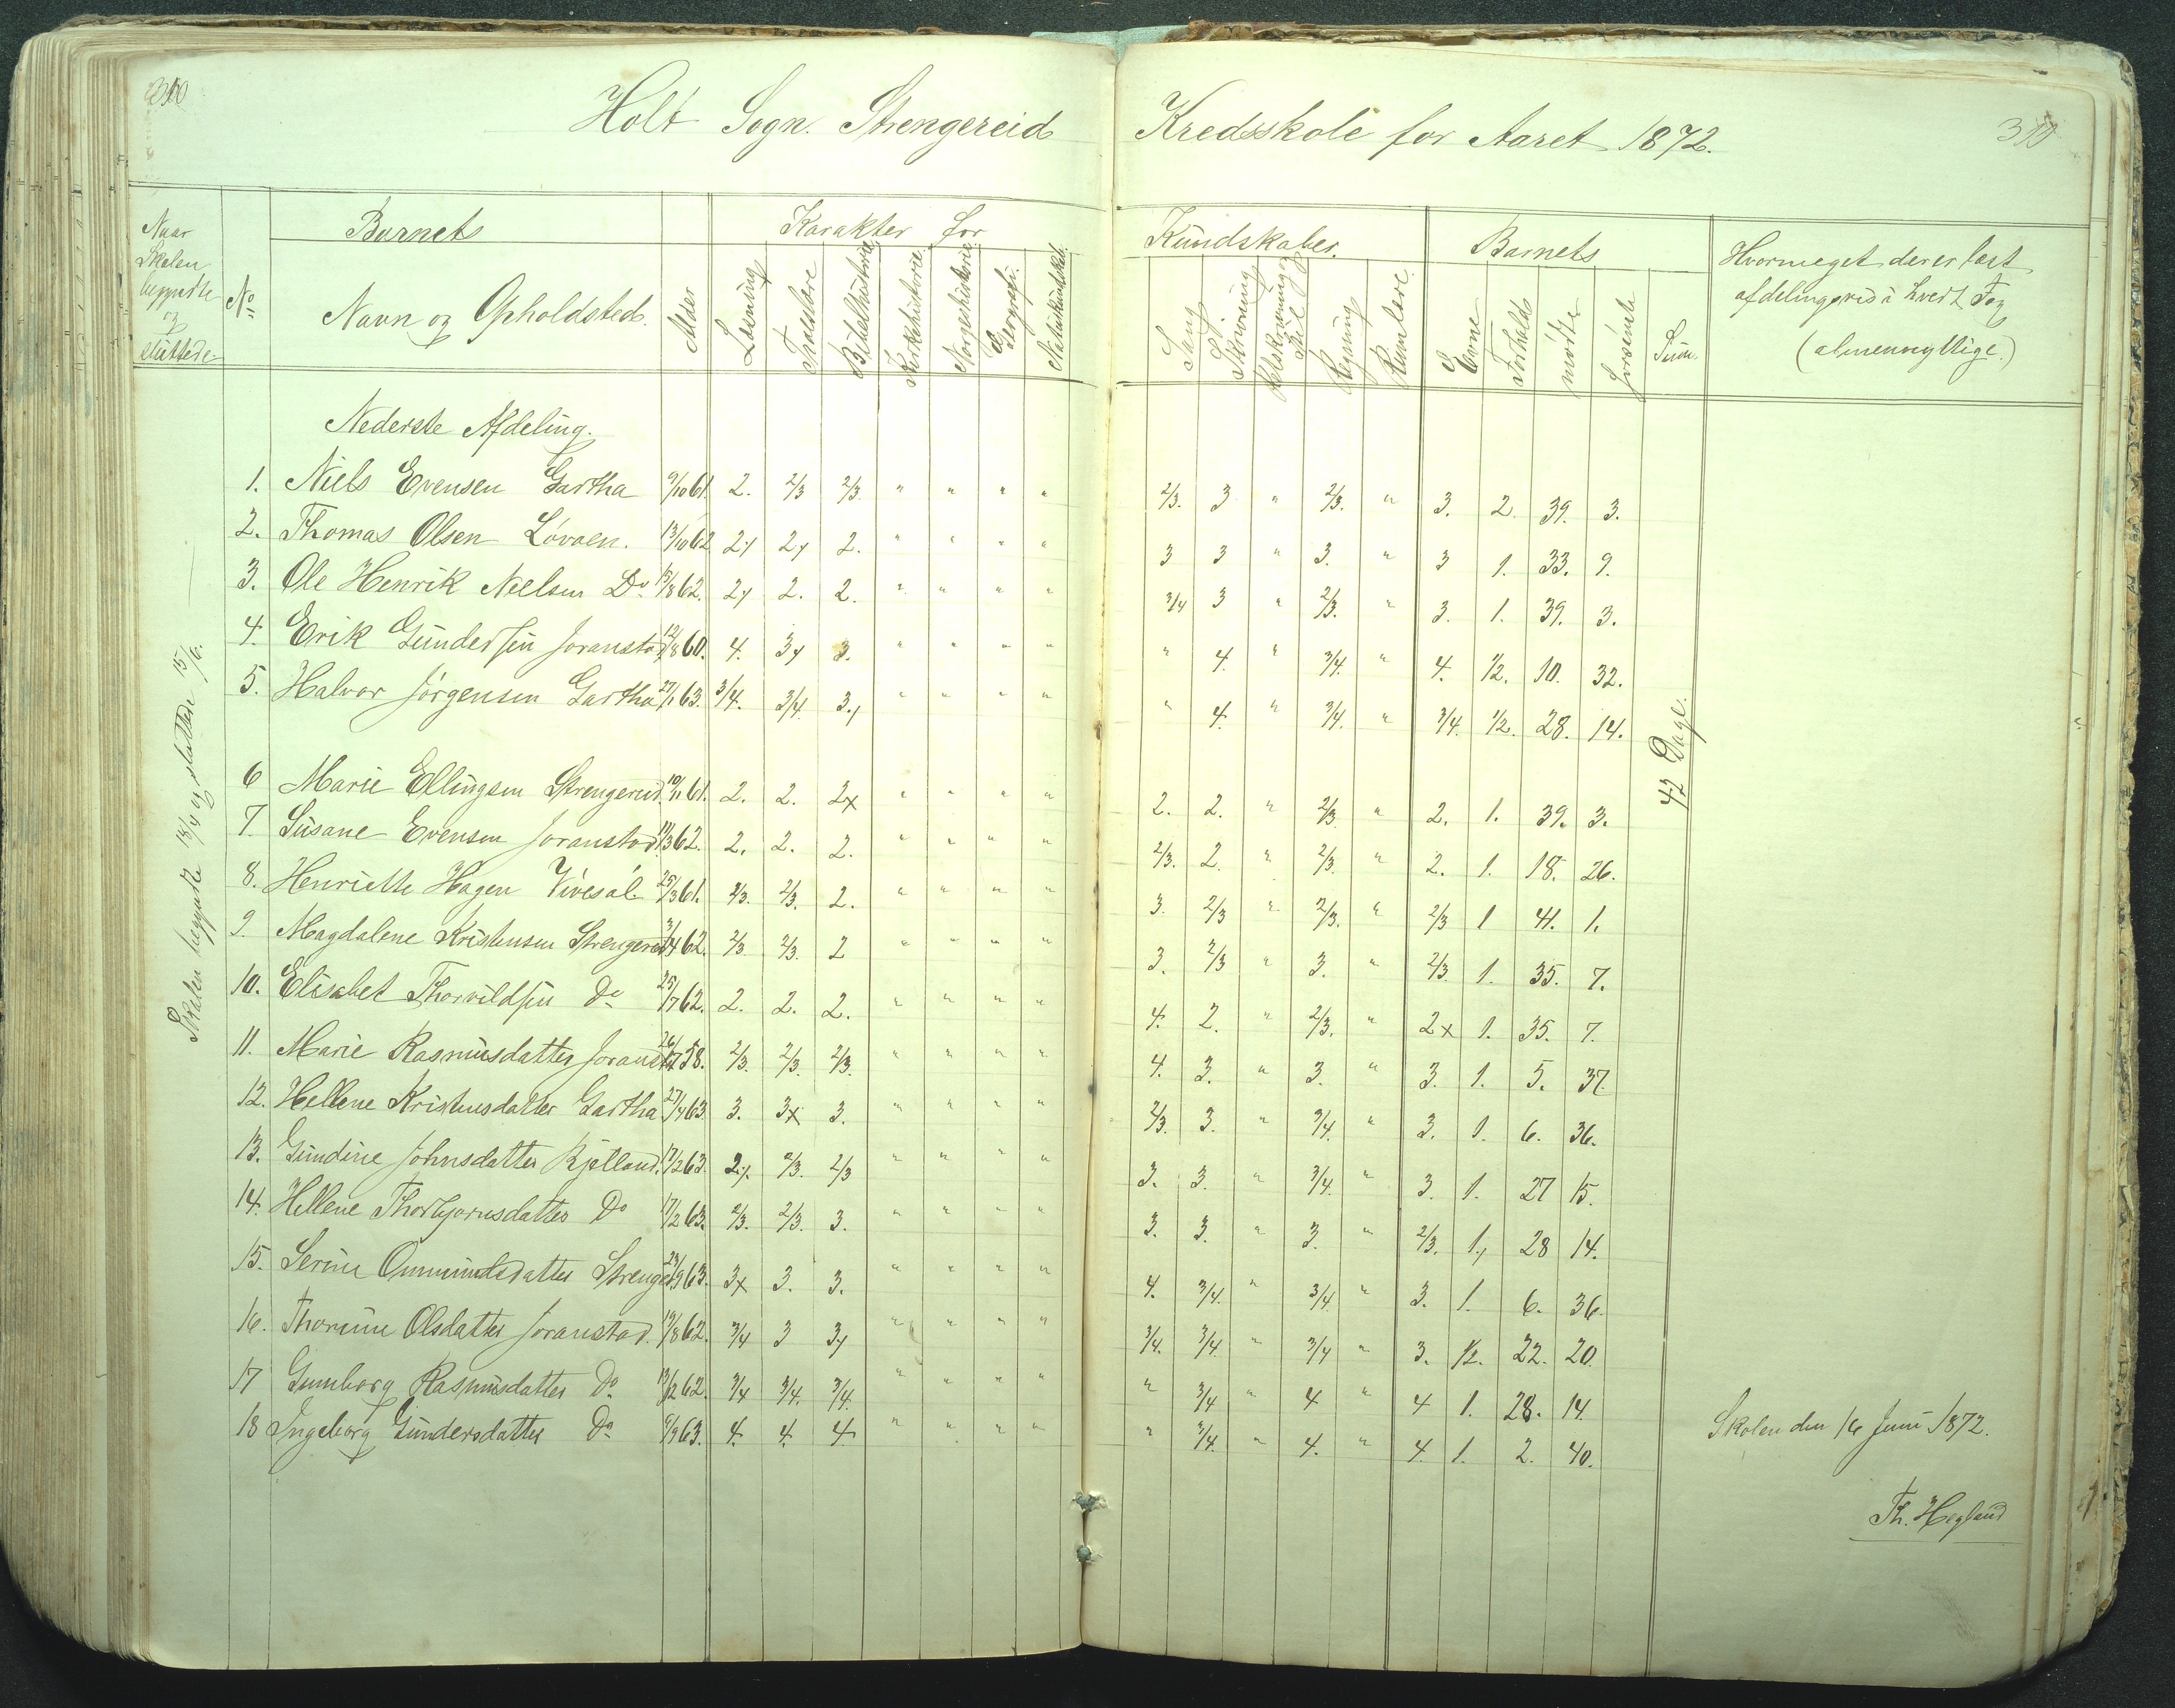 Holt Sogn. Strengereid Kredsskole for Aaret 1872.
Naar Skolen begyndte og sluttede
No
Barnets
Navn og Opholdsted.
Alder
Karakter for
Læsning
Troeslære
Bibelhistorie
Kirkehistorie
Norgeshistorie
Geografi
Naturkundskab
Kundskaber.
Sang
Skrivning
Retskrivning og
Regning
Rumlære
Barnets
Evne
Forhold
mødte
forsømte
Sum.
Hvormeget der er læst
afdelingsvis i hvert Fag
(almennyttige.)
Nederste Afdeling.
1. Niels Evensen Gartha 9/10 61. 2. 2/3 2/3 " " " " 2/3. 3 " 2/3. " 3. 2. 39. 3.
2. Thomas Olsen Løvaen. 13/10 62 2y 2y 2. " " " " 3 3 " 3. " 3 1. 33. 9.
3. Ole Henrik Neelsen Do 15/8 62. 2y 2. 2. " " " " 3/4 3 " 2/3. " 3. 1. 39. 3.
4. Erik Gundersen Joranstad 12/8 60. 4. 3y 3. " " " " " 4. " 3/4. " 4. 1/2. 10. 32.
5. Halvor Jørgensen Gartha 27/1 63. 3/4. 3/4. 3y " " " " " 4. " 3/4. " 3/4. 1/2. 28. 14.
6 Marie Ellingsen Strengereid 10/11 61. 2. 2. 2x " " " " 2. 2. " 2/3. " 2. 1. 39. 3.
7. Susane Evensen Joranstad 62. 2. 2. 2. " " " " 2/3. 2. " 2/3. " 2. 1. 18. 26.
8. Henriette Hagen 25/3 61. 2/3. 2/3. 2. " " " " 3. 2/3 " 2/3. " 2/3 1 41. 1.
9. Magdalene Kristensen Strengereid 62. 2/3. 2/3. 2 " " " " 3. 2/3 " 3. " 2/3. 1. 35. 7.
10. Elisabet Thorvildsen Do 25/7 62. 2. 2. 2. " " " " 4. 2. " 2/3. " 2x 1. 35. 7.
11. Marie Rasmusdatter Joranstad 58. 2/3. 2/3. 2/3. " " " " 4. 3. " 3. " 3. 1. 5. 37
12. Hellene Kristensdatter Gartha 27/4 63. 3. 3x 3. " " " " 2/3. 3. " 3/4. " 3. 1. 6. 36.
13. Gundine Johnsdatter Kjelland. 17/2 63. 2y. 2/3. 2/3 " " " " 3. 3. " 3/4. " 3. 1. 27 15.
14. Hellene Thorbjornsdatter Do 17/2 63. 2/3. 2/3. 3. " " " " 3. 3. " 3. " 2/3. 1., 28 14.
15. Serine Ommundsdatter Strenger. 23/9 63. 3x 3. 3. " " " " 4. 3/4. " 3/4. " 3. 1. 6. 36.
16. Thorine Olsdatter Joranstad. 19/8 62. 3/4 3 3y " " " " 3/4. 3/4. " 3/4 " 3. 1/2. 22. 20.
17 Gunborg Rasmusdatter Do 13/12 62. 3/4 3/4. 3/4. " " " " " 3/4 " 4 " 4 1. 28. 14.
18 Ingeborg Gundersdatter Do 9/9 63. 4. 4. 4. " " " " " 3/4. " 4. " 4. 1. 2. 40.
Skolen begyndte 18/4 og sluttede 15/6.
42 Dage.
Skolen den 16 Juni 1872.
Th. Hegland